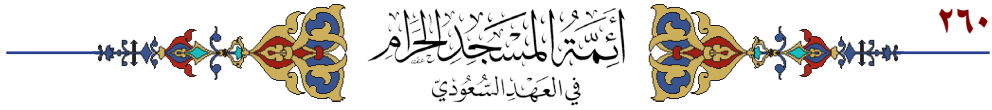 ٢٦٠
أَئِمَّةُ المَسْجِدِ الحَرَامِ
فِي العَهْدِ السُّعُودِيِّ